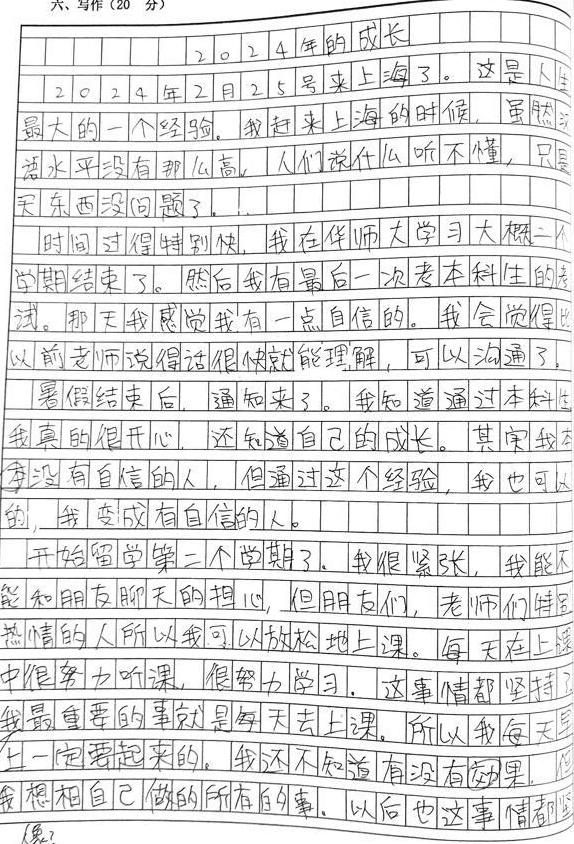 六、写作（20 分）
2024年的成长
2024年2月25号来上海了。这是人生
最大的一个经验。我赶来上海的时候，虽然汉
语水平没有那么高，人们说什么听不懂，只是
买东西没问题了。
时间过得特别快，我在华师大学习大概二个
学期结束了。然后我有最后一次考本科生的考
试。那天我感觉我有一点自信的。我会觉得比
以前老师说得话很快就能理解，可以沟通了。
暑假结束后，通知来了。我知道通过本科生
我真的很开心，还知道自己的成长。其实我本
来没有自信的人，但通过这个经验，我也可以
的，我变成有自信的人。
开始留学第二个学期了。我很紧张，我能不
能和朋友聊天的担心，但朋友们，老师们特别
热情的人所以我可以放松地上课。每天在上课
中很努力听课，很努力学习。这事情都坚持了
我最重要的事就是每天去上课。所以我每天早
上一定要起来的。我还不知道有没有效果，但
我想相自己做的所有的事。以后也这事情都坚